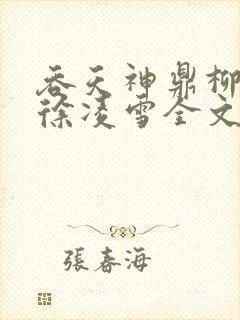 吞天神鼎柳
徐凌雪全文
張春海